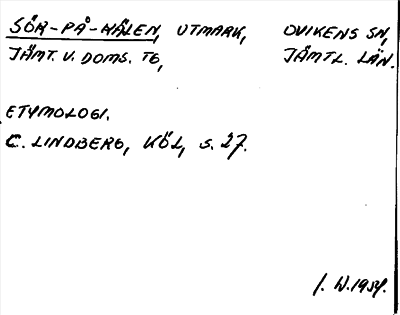 SÖR-PÅ-HÅLEN, UTMARK, OVIKENS SN,
JÄMT. V. DOMS. TG, JÄMTL. LÄN.
ETYMOLOGI.
C. LINDBERG, KÖL, S. 27.
I. W. 1934.